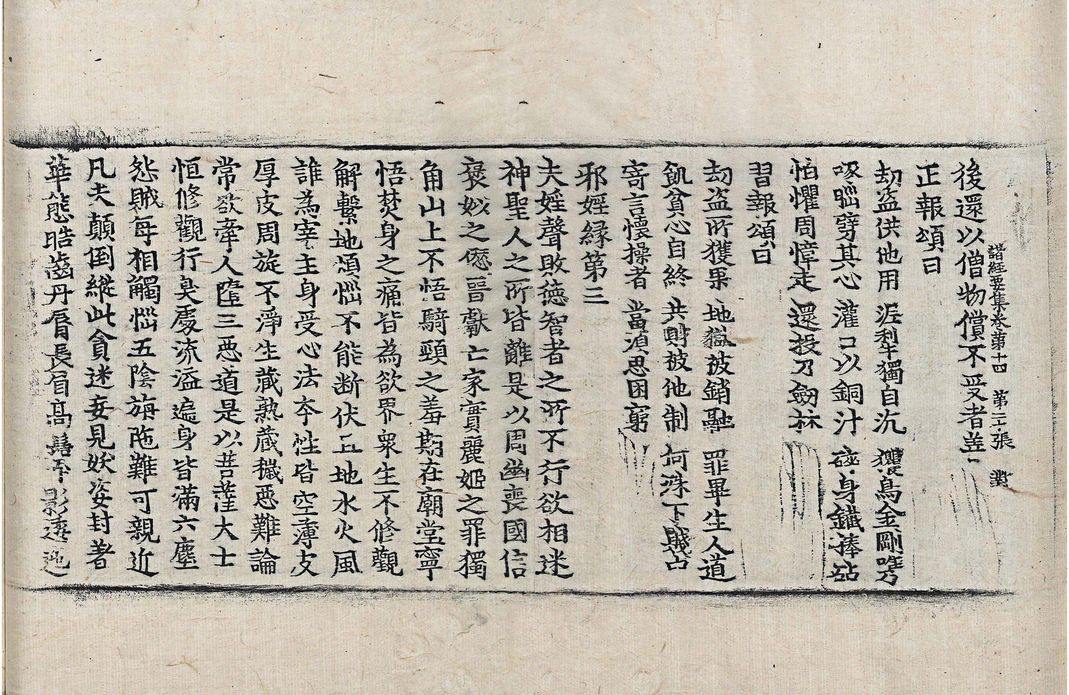 諸經要集卷第十四 第二十張
後還以僧物償不受者並
正報頌曰
劫盜供他用 泥犁獨自沉 獲鳥金剛㭰
啄𡿺劈其心 灌口以銅汁 碎身鐵捧砧
怕懼周慞走 還投刀劒林
習報頌曰
劫盜所獲果 地獄被銷融 罪畢生人道
飢貧心自終 共財被他制 何殊下賤
寄言懷操者 當湏思困窮
邪婬緣第三
夫婬聲敗德智者之所不行欲相迷
神聖人之所皆離是以周幽喪國信
褒姒之𠎝晉獻亡家實麗姬之罪獨
角山上不悟騎頸之羞期在廟堂寧
悟焚身之痛皆為欲界衆生不修觀
解繫地煩惱不能断伏且地水火風
誰為宰主身受心法夲性皆空薄皮
厚皮周旋不淨生藏熟藏穢惡難論
常欲牽人墮三惡道是以菩薩大士
恒修觀行臭處流溢遍身皆滿六塵
怨賊每相觸惱五陰旃陁難可親近
凡夫顛倒縱此貪迷妄見妖姿封著
華態晧齒丹脣長眉高髻弄影逶迤